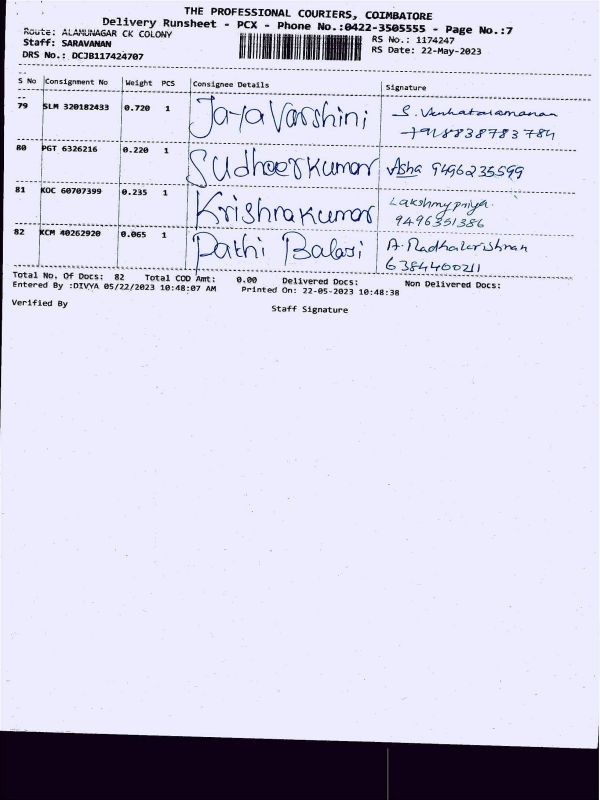 THE PROFESSIONAL COURIERS, COIMBATORE
Delivery Runsheet - PCX - Phone No.:0422-3505555 - Page No.:7
Route: ALAMUNAGAR CK COLONY RS No.: 1174247
Staff: SARAVANAN RS Date: 22-May-2023
DRS No.: DCJB117424707
S No Consignment No Weight PCS Consignee Details Signature
79 SLM 320182433 0.720 1 Jaya Varshini S. Venkataramanan
+918838783784
80 PGT 6326216 0.220 1 Sudheerkumar Asha 9496235599
81 KOC 60707399 0.235 1 Krishnakumar Lakshmypriya.
9496351386
82 KCM 40262920 0.065 1 Pathi Balaji A. Radhakrishnan
6384400211
Total No. Of Docs: 82 Total COD Amt: 0.00 Delivered Docs: Non Delivered Docs:
Entered By :DIVYA 05/22/2023 10:48:07 AM Printed On: 22-05-2023 10:48:38
Verified By Staff Signature